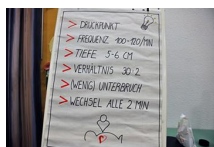 > DRUCKPUNKT
> FREQUENZ 100-120/MIN
> TIEFE 5-6 CM
> VERHÄLTNIS 30:2
> (WENIG) UNTERBRUCH
> WECHSEL ALLE 2 MIN